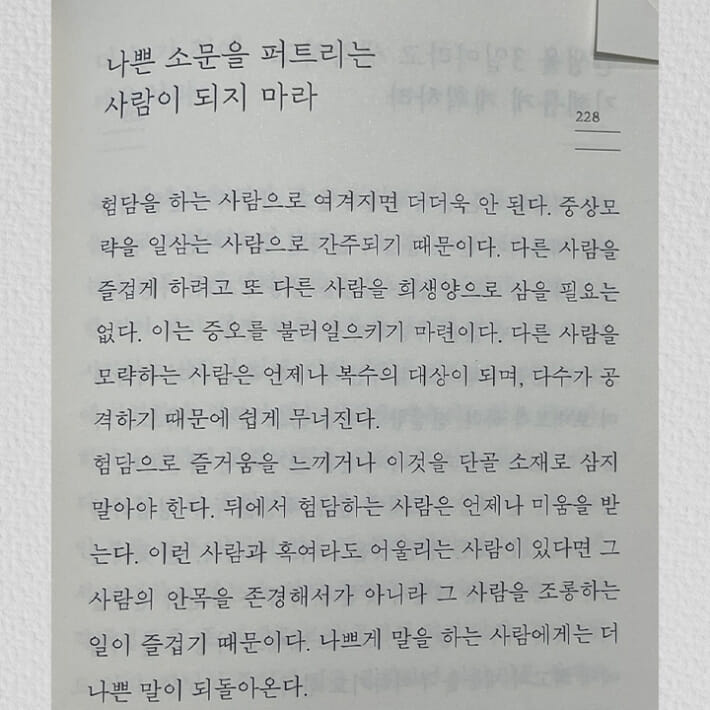 나쁜 소문을 퍼트리는
사람이 되지 마라
228
험담을 하는 사람으로 여겨지면 더더욱 안 된다. 중상모
략을 일삼는 사람으로 간주되기 때문이다. 다른 사람을
즐겁게 하려고 또 다른 사람을 희생양으로 삼을 필요는
없다. 이는 증오를 불러일으키기 마련이다. 다른 사람을
모략하는 사람은 언제나 복수의 대상이 되며, 다수가 공
격하기 때문에 쉽게 무너진다.
험담으로 즐거움을 느끼거나 이것을 단골 소재로 삼지
말아야 한다. 뒤에서 험담하는 사람은 언제나 미움을 받
는다. 이런 사람과 혹여라도 어울리는 사람이 있다면 그
사람의 안목을 존경해서가 아니라 그 사람을 조롱하는
일이 즐겁기 때문이다. 나쁘게 말을 하는 사람에게는 더
나쁜 말이 되돌아온다.